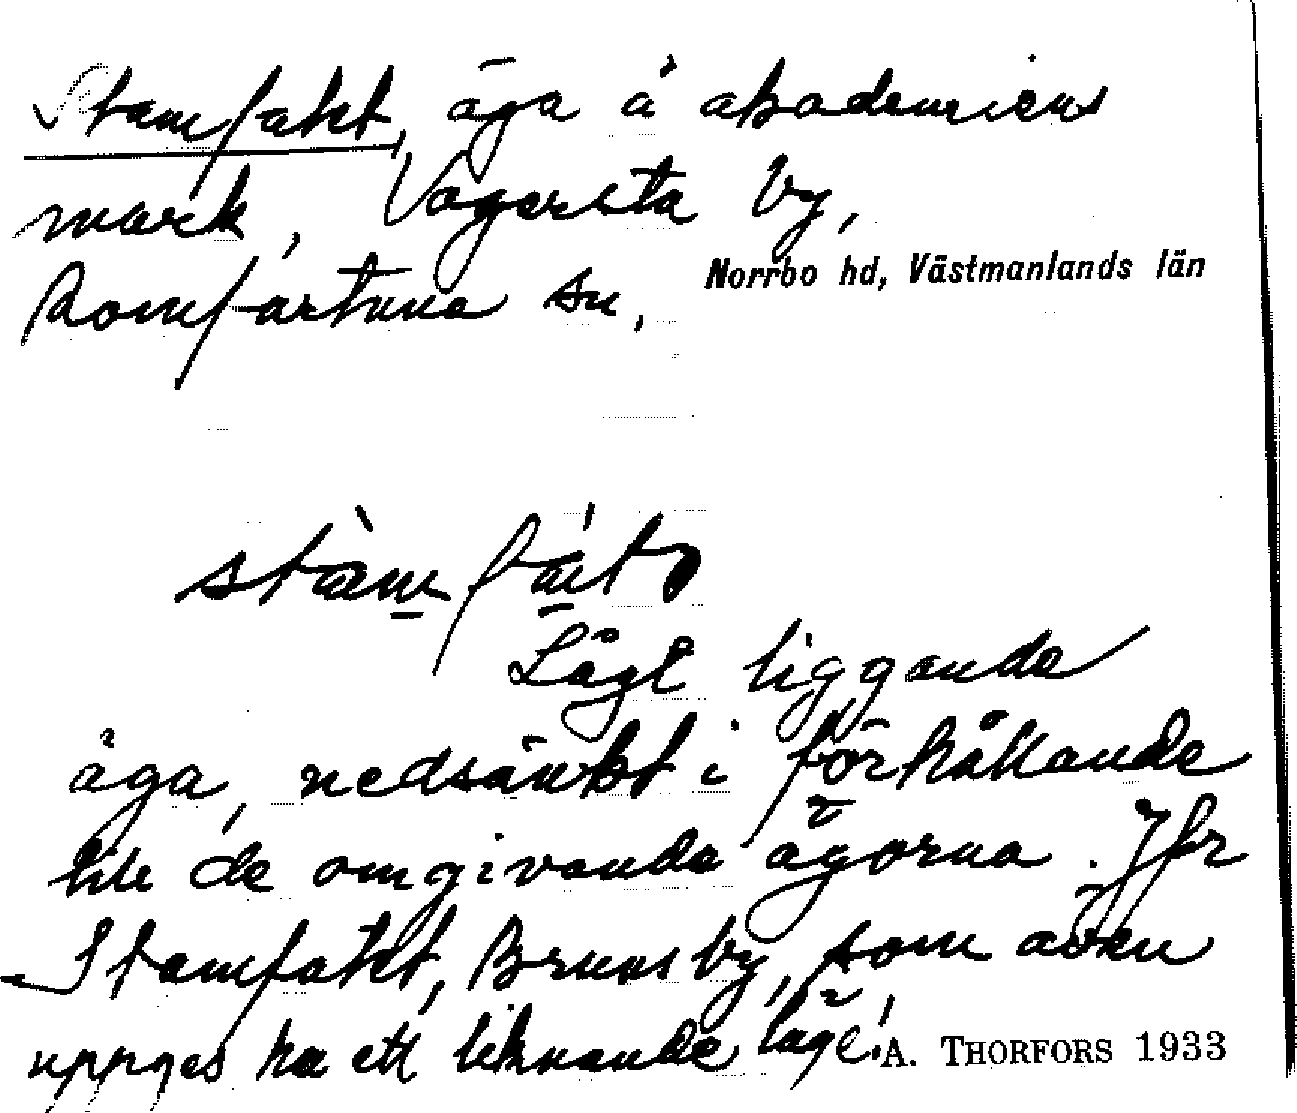 Stamfakt, äga å akademiens
mark, Vågersta by,
Romfartuna sn,
Norrbo hd, Västmanlands län
Lågt liggande
äga, nedsänkt i förhållande
till de omgivande ägorna. Jfr
Stamfakt, Bruns by, som även
uppges ha ett liknande läge!
A. THORFORS 1933